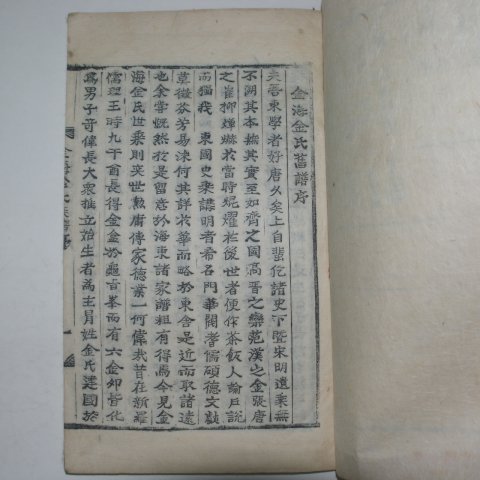 金海金氏舊譜序
夫吾東學者好唐久矣上自輩佗諸史下暨宋明遺乘無
不朔其本撫其實至如齊之國高晋之欒范漢之金張唐
之崔柳赫赫於當時焜燿於後世者便作茶飯人論戶說
而獨我 東國史乘譜明者希名門華閥耆儒碩德文獻
草微芬芳易沫何其詳於華而略於東舍是近而取諸遠
也余嘗慨然於是留意於海東諸家譜粗有得焉今見金
海金氏世乘則奕世勲庸傳家德業一何偉哉昔在新羅
儒理王時九干酋長得金盒於龜旨峯而有六金卵皆化
爲男子奇偉長大衆推立始生者爲主月姓金氏建國於